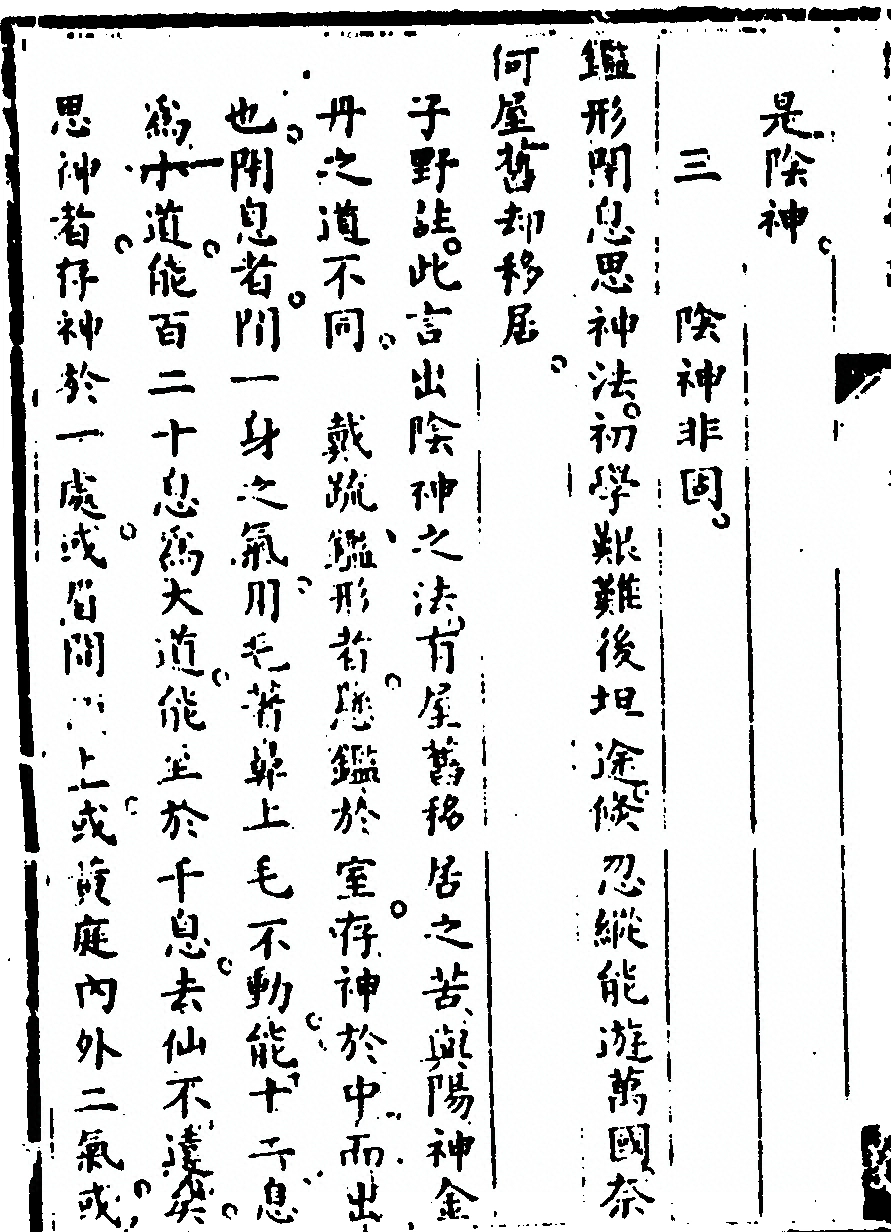 是陰神
三 陰神非固
鑑形閉息思神法初學艱難後坦途倐忍縱能遊萬國奈
何屋舊却移居
子野註此言出陰神之法有屋舊移居之苦與陽神金
丹之道不同 戴疏鑑形者懸鑑於室存神於中而出
也閉息者閉一身之氣用毛著鼻上毛不動能十二息
爲小道能百二十息爲大道能至於千息去仙不遠矣
思神者存神於一處或眉間 上或黄庭內外二氣或